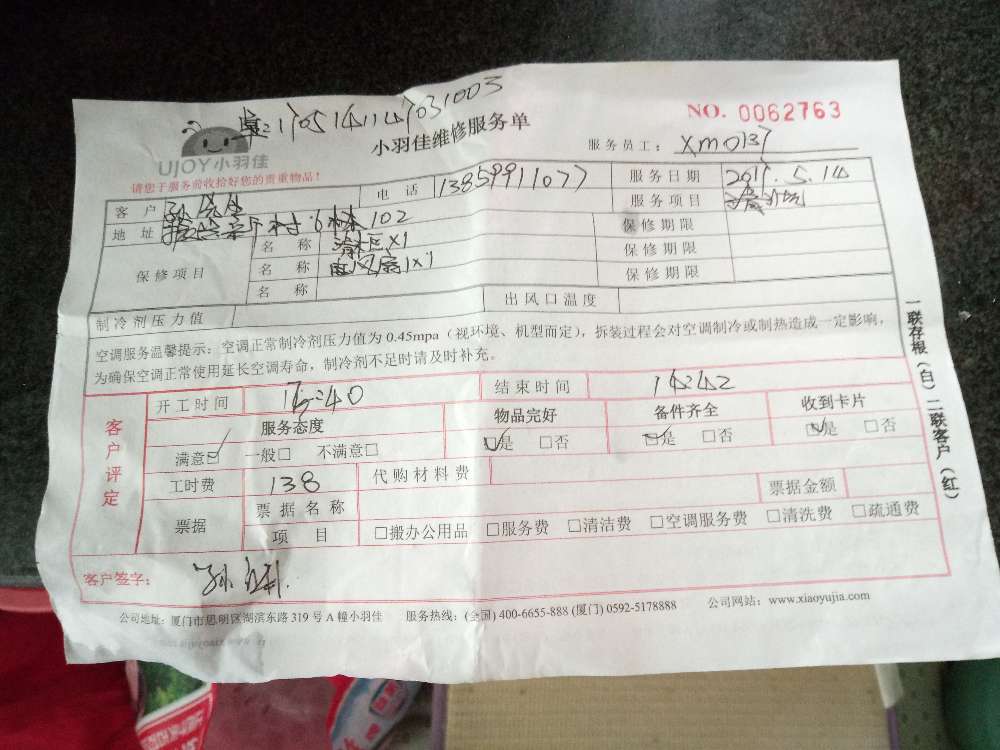 1705141147031003
NO. 0062763
UJOY小羽佳
小羽佳维修服务单
服务员工： xm0137
请您于服务前收拾好您的贵重物品！
客 户 孙先生 电 话 13859911077 服务日期 2017.5.14
服务项目
地 址 102 保修期限
保修项目 名 称 x1 保修期限
名 称 电风扇1x1 保修期限
名 称
制冷剂压力值 出风口温度
空调服务温馨提示：空调正常制冷剂压力值为 0.45mpa（视环境、机型而定），拆装过程会对空调制冷或制热造成一定影响，
为确保空调正常使用延长空调寿命，制冷剂不足时请及时补充。
客户评定
开工时间 结束时间 14:42
服务态度 物品完好 备件齐全 收到卡片
满意□ 一般□ 不满意□ □是 □否 □是 □否 □是 □否
工时费 138 代购材料费
票据 票据名称 票据金额
项 目 □搬办公用品 □服务费 □清洁费 □空调服务费 □清洗费 □疏通费
客户签字： 孙
公司地址：厦门市思明区湖滨东路 319 号 A 幢小羽佳 服务热线：(全国) 400-6655-888 (厦门) 0592-5178888 公司网站：www.xiaoyujia.com
一联存根（白）二联客户（红）